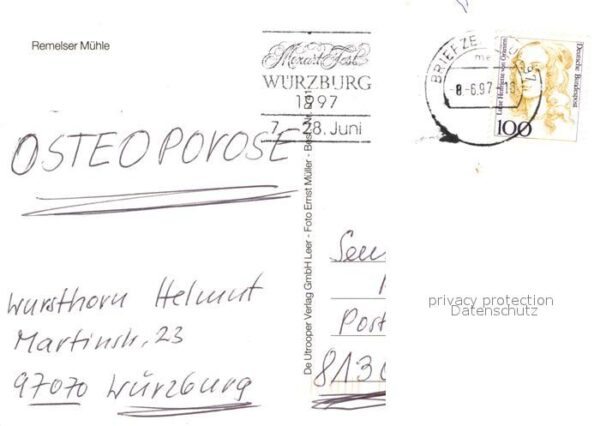 Remelser Mühle
Mozart Fest
WÜRZBURG
1997
7. - 28. Juni
BRIEFZE
-8-6.97-
Deutsche Bundespost
100
OSTEOPOROSE
De Utrooper Verlag GmbH Leer - Foto Ernst Müller - Best.-Nr.
Wursthorn Helmut
Martinstr. 23
97070 Würzburg
Post
8130
privacy protection
Datenschutz